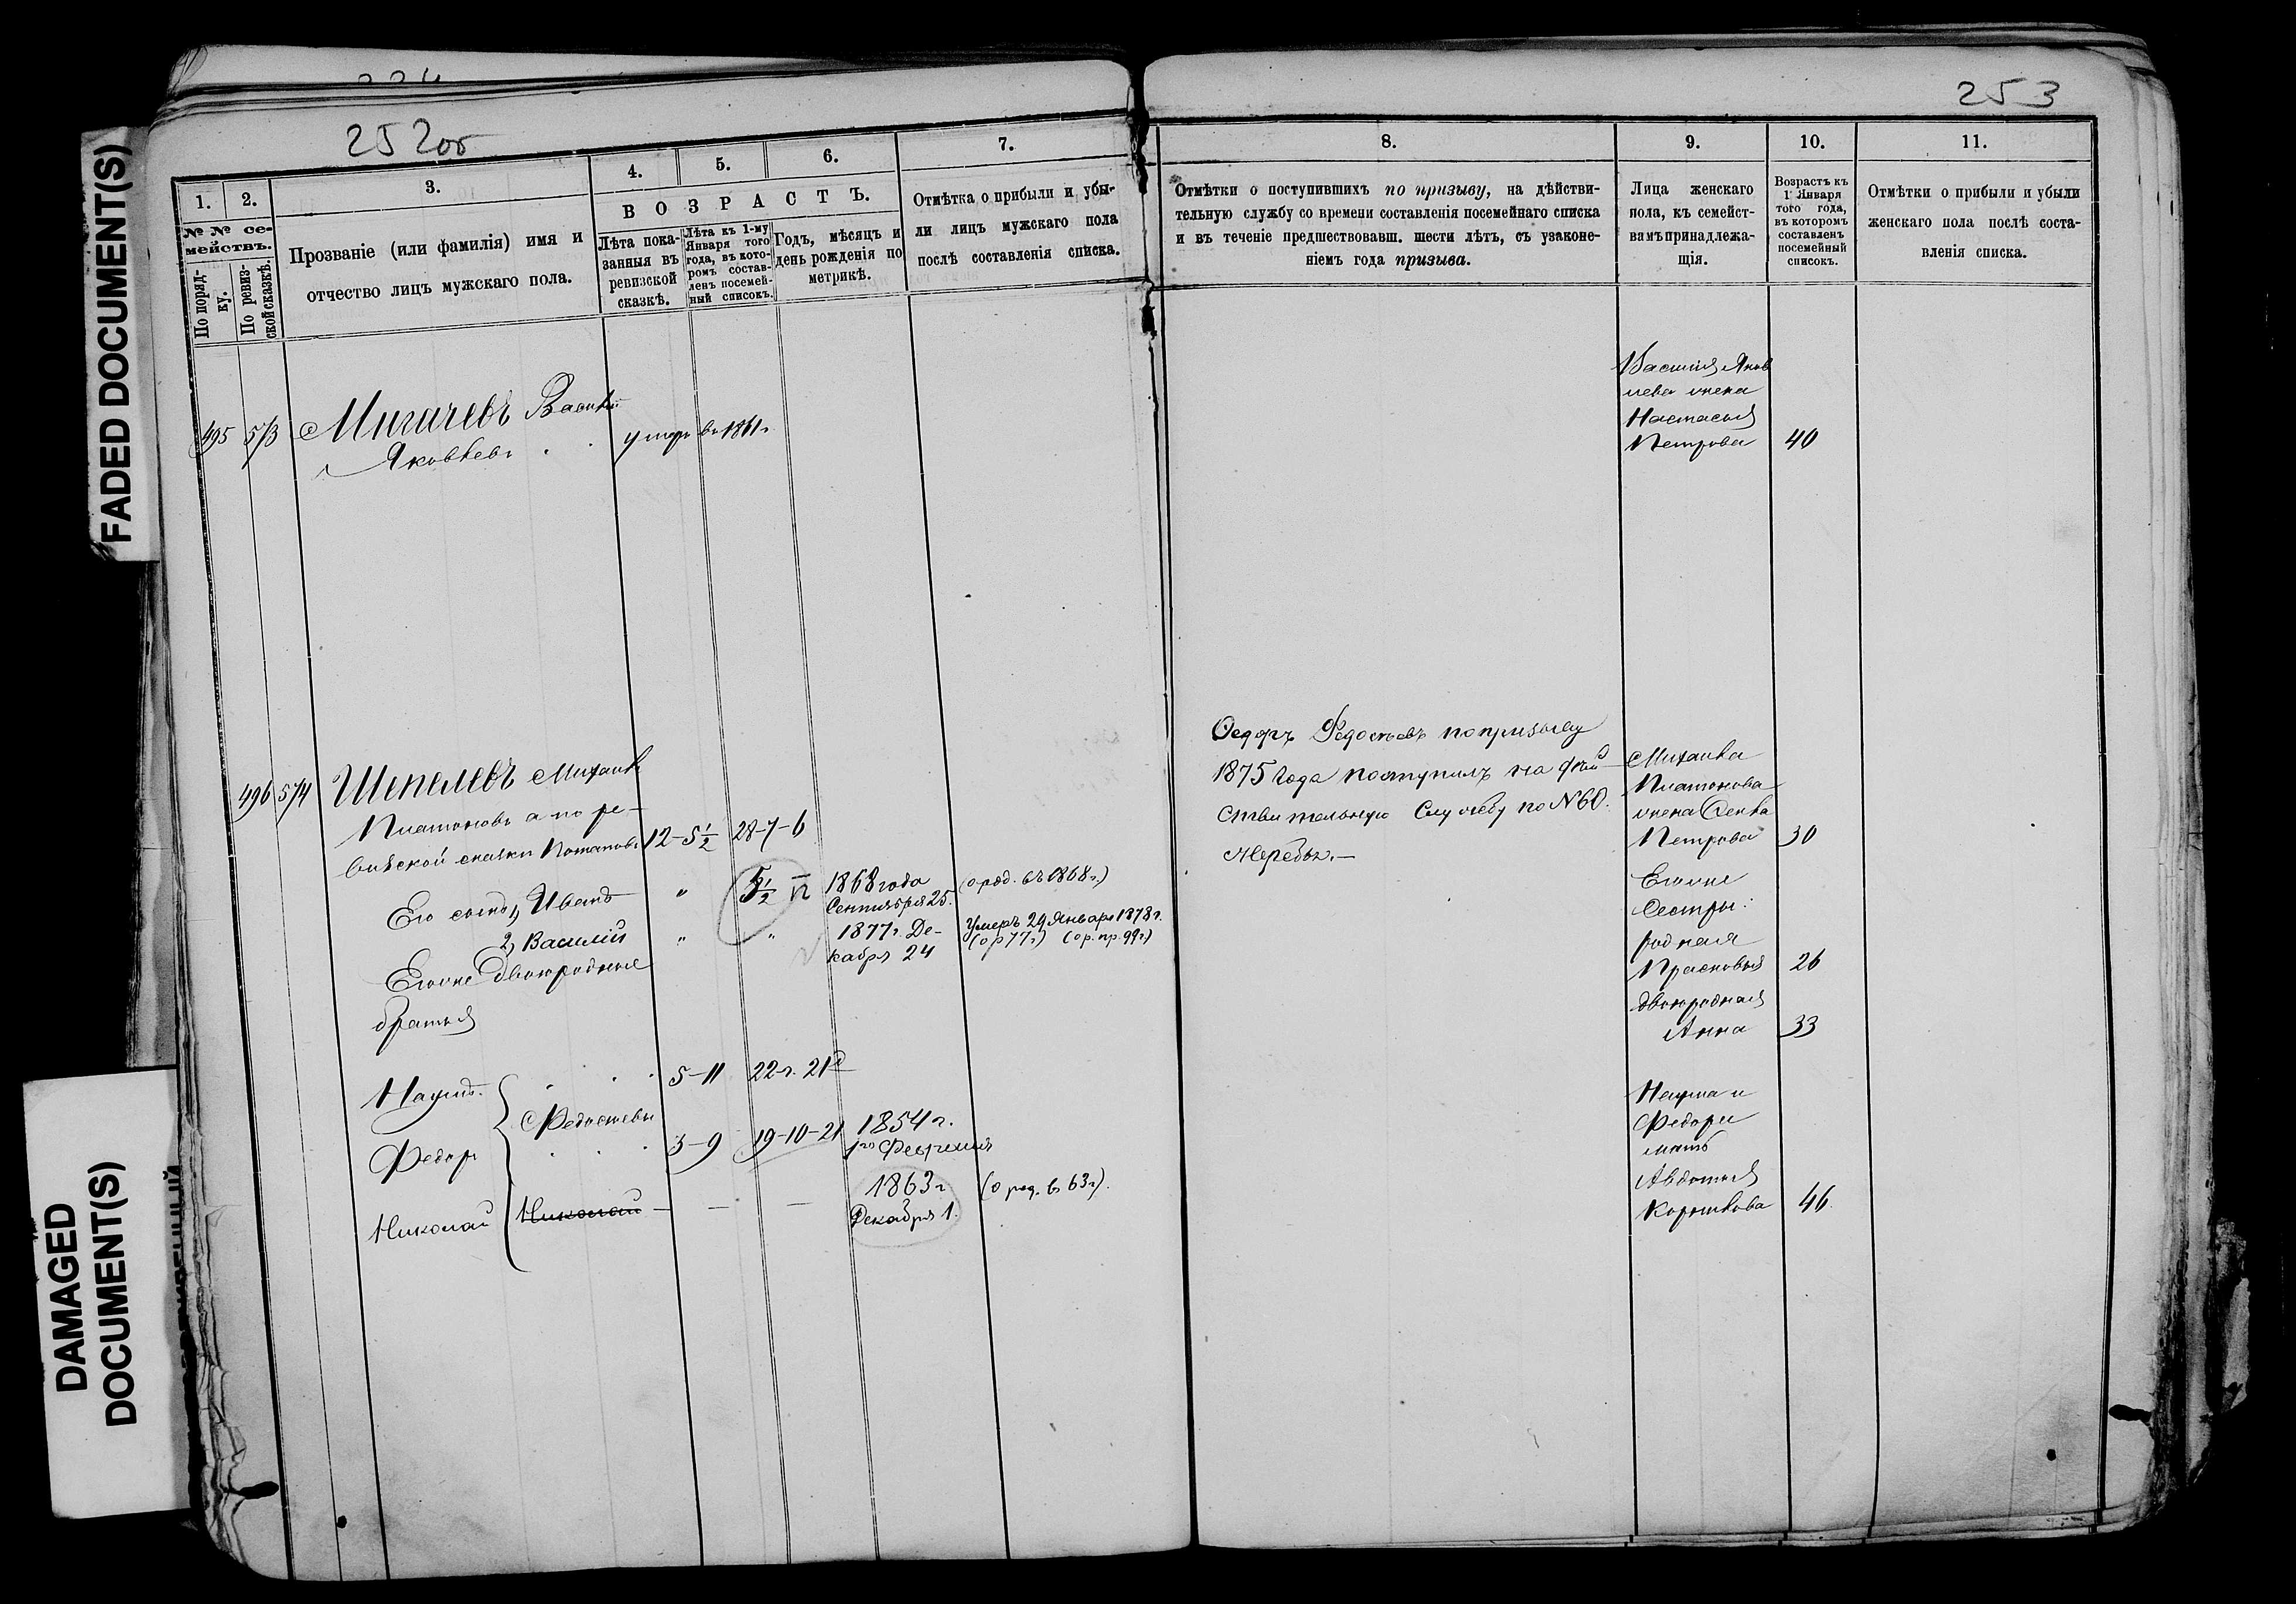 FADED DOCUMENT(S)
DAMAGED
DOCUMENT(S)
252об
1.
2.
3.
4.
5.
6.
7.
№ № се-
мействъ.
По поряд-
ку.
По ревиз-
ской сказкѣ.
Прозваніе (или фамилія) имя и
отчество лицъ мужскаго пола.
ВОЗРАСТЪ.
Лѣта пока-
занныя въ
ревизской
сказкѣ.
Лѣта къ 1-му
Января того
года, въ кото-
ромъ состав-
ленъ посемей-
ный списокъ.
Годъ, мѣсяцъ и
день рожденія по
метрикѣ.
Отмѣтка о прибыли и убы-
ли лицъ мужскаго пола
послѣ составленія списка.
495 573 Мигачевъ Василій
Яковлевъ умеръ въ 1861г.
496 574 Шепелевъ Михаилъ
Платоновъ а по ре-
визской сказки Потаповъ 12-5½ 28-7-6
Его сыновья 1, Иванъ " 5½ 1868 года
Сентября 25. (о род. въ 1868 г.)
2, Василій " " 1877 г. Де-
кабря 24 Умеръ 29 Января 1878 г.
(о р 77 г.) (о р. пр. 99 г.)
Егоже двоюродные
братья
Наумъ 5-11 22 г. 21 д
Федостьевы
Федоръ 3-9 19-10-21 1854 г.
Февраля
Николай Николай — — — 1863 г
Декабря 1. (о род. въ 63 г).
253
8.
9.
10.
11.
Отмѣтки о поступившихъ по призыву, на дѣйстви-
тельную службу со времени составленія посемейнаго списка
и въ теченіе предшествовавш. шести лѣтъ, съ узаконе-
ніемъ года призыва.
Лица женскаго
пола, къ семейст-
вамъ принадлежа-
щія.
Возрастъ къ
1 Января
того года,
въ которомъ
составленъ
посемейный
списокъ.
Отмѣтки о прибыли и убыли
женскаго пола послѣ соста-
вленія списка.
Василія Яков
лева жена
Настасья
Петрова 40
Ѳедоръ Федостьевъ по призыву
1875 года поступилъ на дѣй
ствительную Службу по №60.
жеребья.—
Михаила
Платонова
жена Ѳекла
Петрова 30
Егоже
Сестры:
родная
Прасковья 26
двоюродная
Анна 33
Наума и
Федора
мать
Авдотья
46